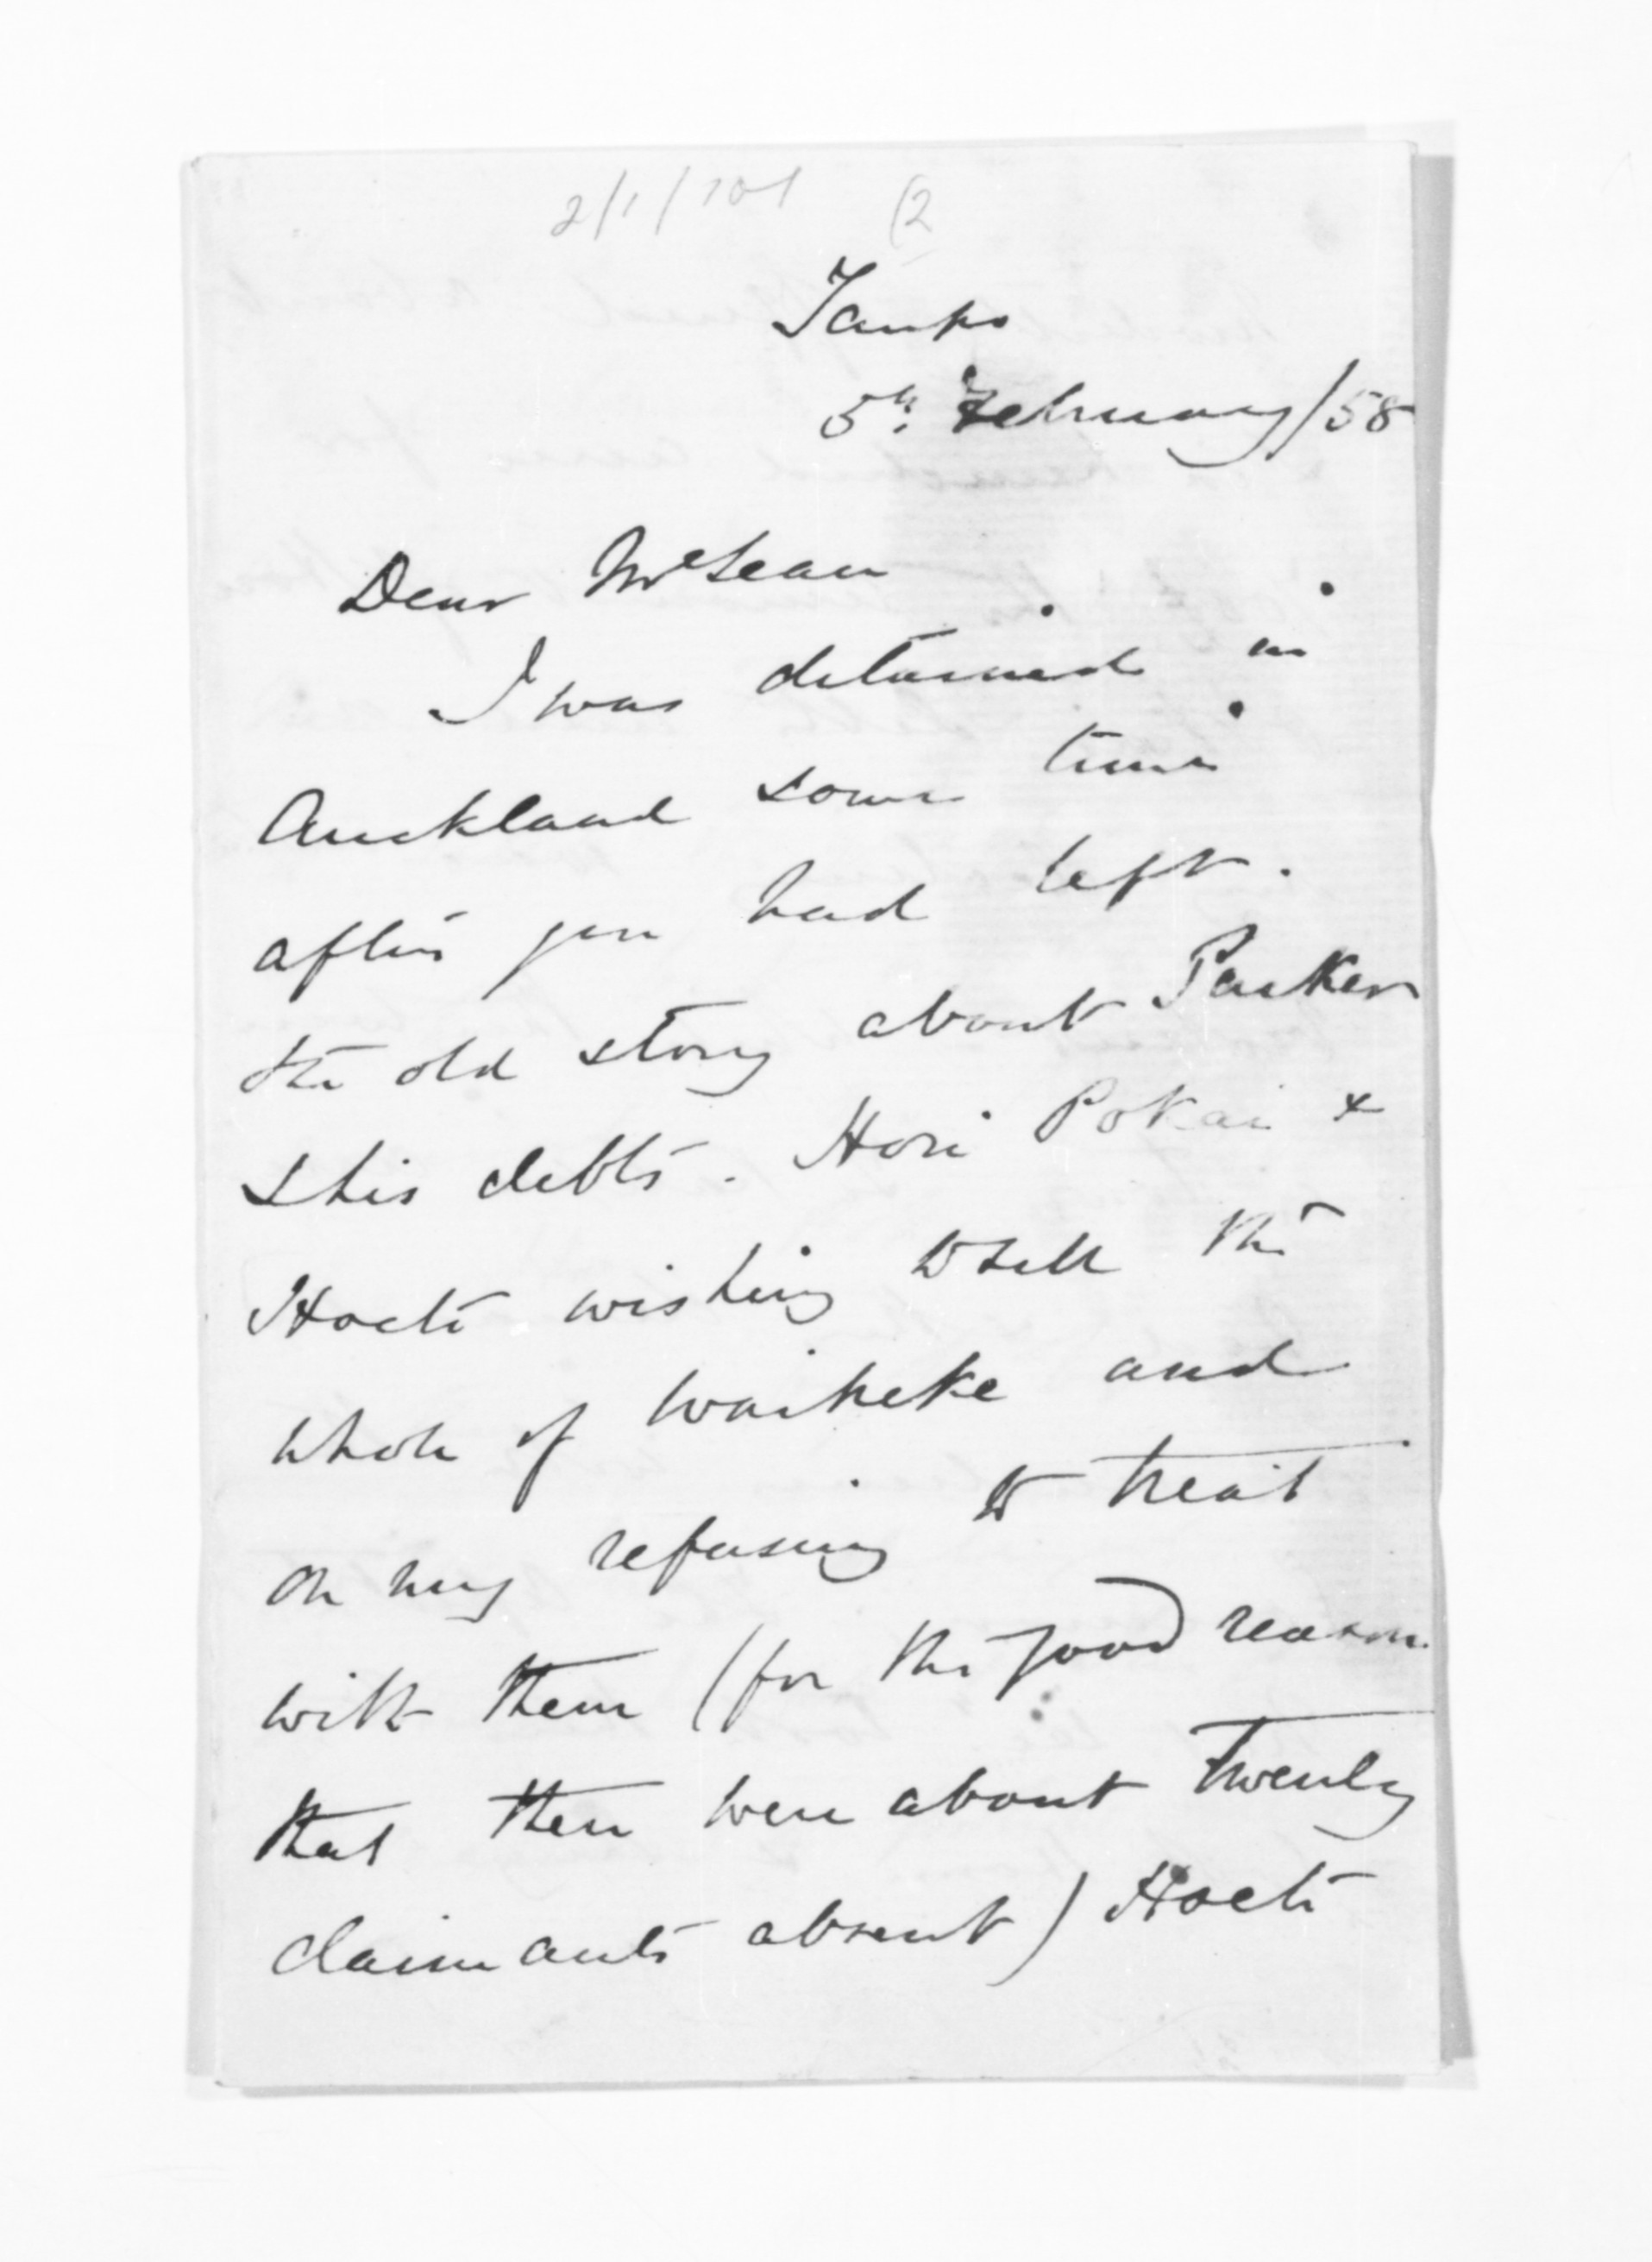 2/1/101 (2
Taupo
5th. February/58
Dear McLean
I was detained in
Auckland some time
after you had left.
the old story about Parker
& his debts. Hori Pokai &
Hoete wishing to sell the
whole of Waiheke and
on my refusing to treat
with them (for the good reason
that there were about Twenty
claimants absent) Hoete